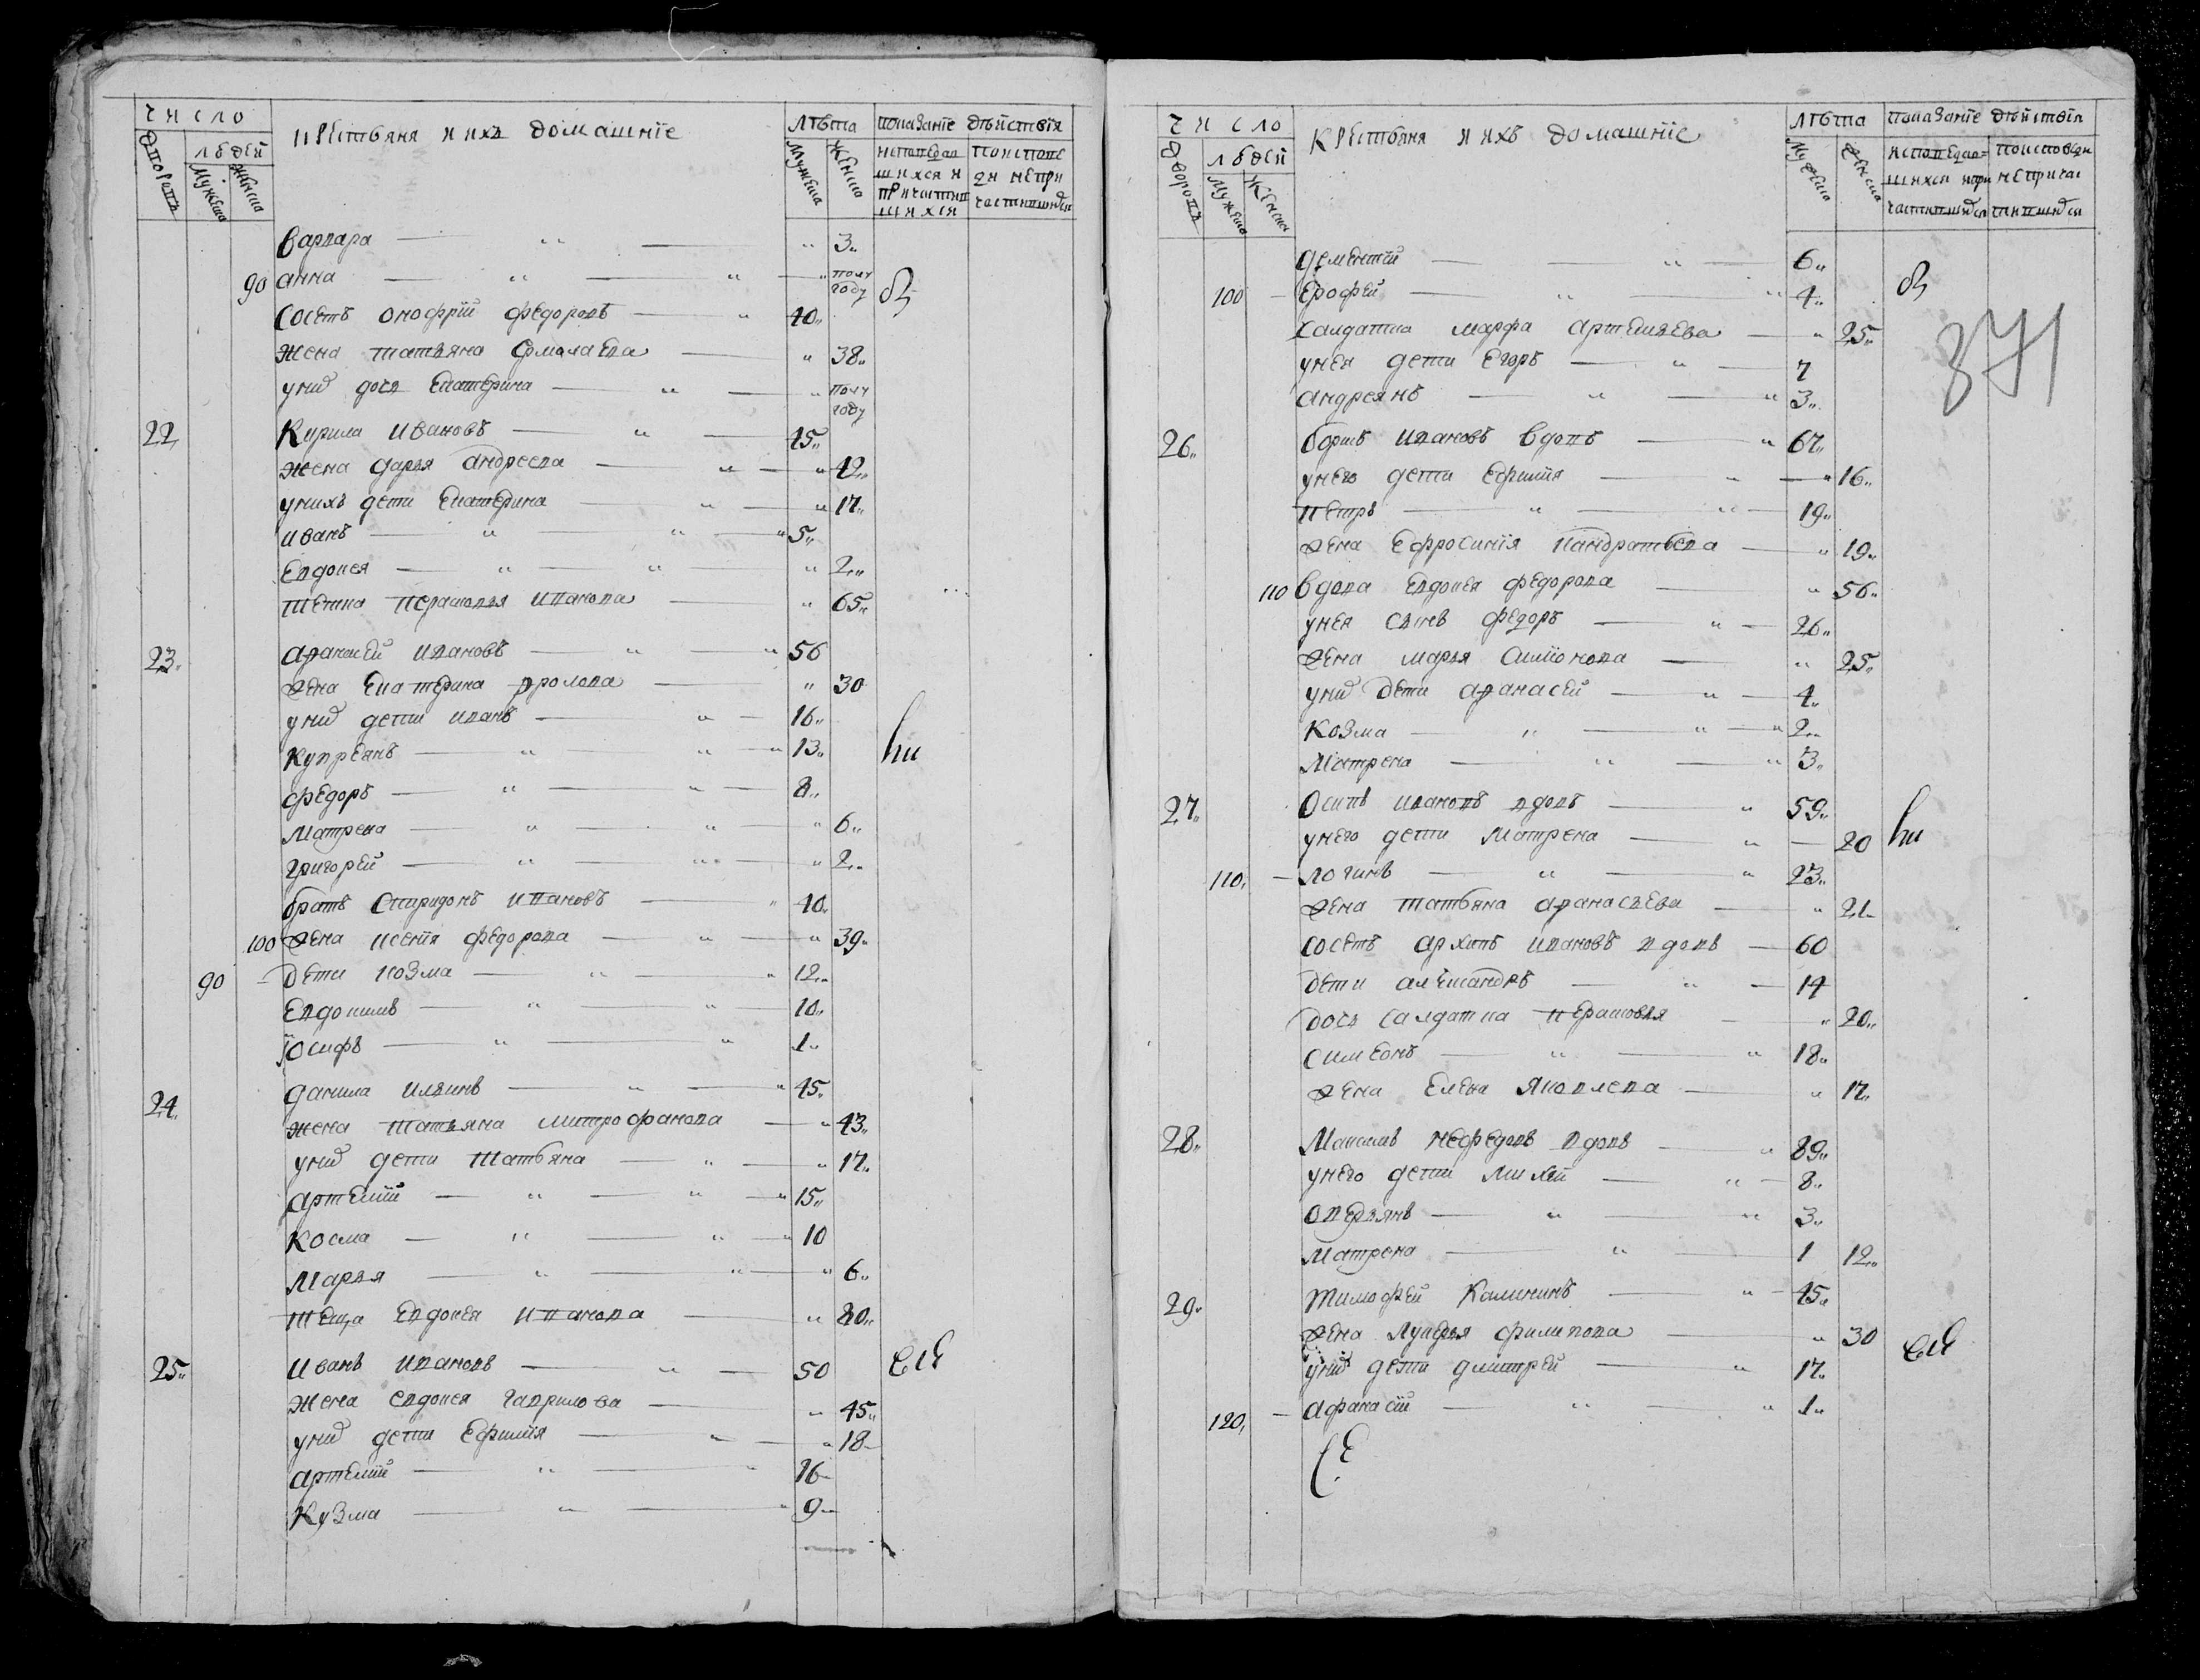 число
крестьяня и ихъ домашнїе
лѣта
показанїе дѣйствїя
дворовъ
людей
мужеска
женска
мужеска
женска
исповедав
шихся и
причастив
шихся
поиспове
ди непри
частившиеся
варвара " " 3"
90 анна " " " полу году
сосетъ онофрїй федоровъ " 40"
жена татьяна ермолаева " 38"
унй дочь екатерина " " полу году
22 курила ивановъ " 45"
жена дарья андреева " " 42"
унихъ дети екатерина " " 17"
иванъ " " " 5"
евдокея " " " 2"
тетка парасковья иванова " 65"
23" афанасей ивановъ " " 56
жена екатерина фролова " 30
унй дети иванъ " 16"
купреянъ " " " 13"
федоръ " " 8"
матрена " " " 6"
григорей " " " 2"
братъ спиридонъ ивановъ " 40"
100 жена ксенїя федорова " " 39"
90 дети козма " " 12"
евдокимъ " " 10"
їосифъ " " 1"
24" данила ильинъ " " 45"
жена татьяна митрофанова " 43"
унй дети татьяна " " 17"
артемїй " " " 15"
косма " " " 10
марья " " " 6"
теща евдокея иванова " 80"
25" иванъ ивановъ " 50
жена евдокея гаврилова " 45"
унй дети ефимїя " " 18
артемїй " " 16
кузма " " 9
число
крестьяня и ихъ домашнїе
лѣта
показанїе дѣйствїя
дворовъ
людей
мужеска
женска
мужеска
женска
исповедав=
шихся ипри
частившихся
поисповеди
неприча
стившиеся
371
дементїй " 6"
100 ерофей " " 4"
салдатка марфа артемьева " 25"
унея дети егоръ " 7
андреянъ " " 3"
26" борисъ ивановъ вдовъ " 67"
унего дети ефимїя " " 16"
петръ " " 19"
жена ефросинїя кандратьева " 19"
110 вдова евдокея федорова " 56"
унея сынъ федоръ " 26"
жена марья симїонова " 25"
унй дети афанасей " 4"
козма " " " 2"
матрена " " 3"
27" осипъ ивановъ вдовъ " 59"
унего дети матрена " 20
110" логинъ " " 23"
жена татьяна афанасьева " 21
сосетъ архипъ ивановъ вдовъ 60
дети александръ " 14
дочь салдатка парасковья " 20"
симеонъ " " 18"
жена елена яковлева " 17"
28" максимъ нефедовъ вдовъ " 89"
унего дети михей " 8"
аверьянъ " " 3"
матрена " 1 12"
29" тимофей калининъ " 45"
жена лукерья филипова " 30
унй дети димитрей " 17"
120" афанасїй " " 1"